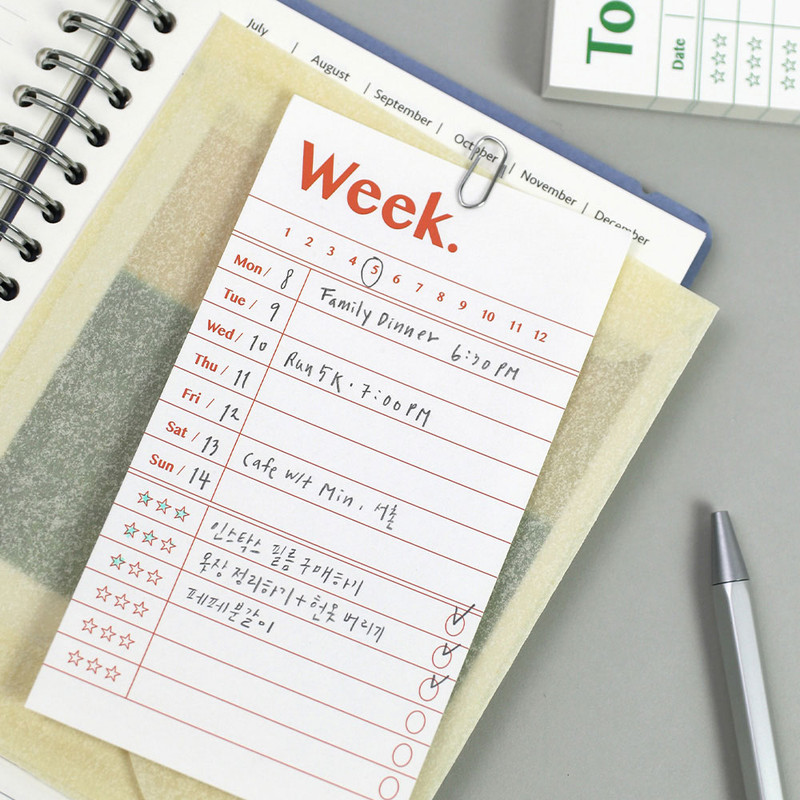 July | August | September | October | November | December
To
Date
Week.
1 2 3 4 5 6 7 8 9 10 11 12
Mon / 8 Family Dinner 6:30 PM
Tue / 9
Wed / 10 Run 5K · 7:00 PM
Thu / 11
Fri / 12
Sat / 13 Cafe w/t Min, 서촌
Sun / 14
인스탁스 필름 구매하기
옷장 정리하기 + 헌옷 버리기
페페 분갈이